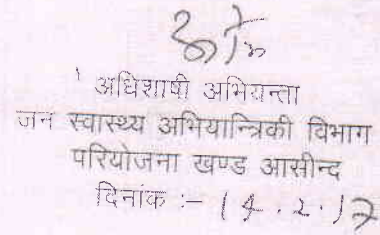 अधिशाषी अभियन्ता
जन स्वास्थ्य अभियान्त्रिकी विभाग
परियोजना खण्ड आसीन्द
दिनांक :- 14.2.17